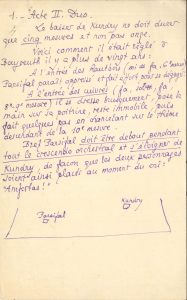 1. - Acte II. Duo.
Le baiser de Kundry ne doit durer
que cinq mesures et non pas onze.
Voici comment il était réglé à
Bayreuth il y a plus de vingt ans:
A l'entrée des hautbois
Parsifal paraît
A l'entrée des cuivres (fa,
mesure) il se dresse brusquement, pose la
main sur sa poitrine, reste immobile, puis
fait quelques pas en chancelant sur le thème
descendant de la 10e mesure.
Bref Parsifal doit être debout pendant
tout le crescendo orchestral et s'éloigner de
Kundry, de façon que les deux personnages
soient ainsi placés au moment du cri:
"Amfortas!"
Kundry
Parsifal